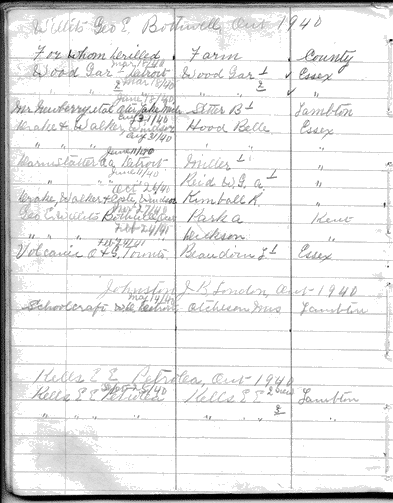 Willits Geo E. Bothwell, Ont 1940
For whom Drilled Farm County
Mar 15/40
Wood Gar 1 Detroit Wood Gar 1 Essex
Mar 18/40
" " 2 " " " 2 "
June 7/40
Mr Newberry et al Sitter B 1 Lambton
Aug 31/40
Drake & Walker, Windsor Hood Belle Essex
Aug 31/40
" " " " " "
June 11/40
Detroit Miller 1 "
June 11/40
" " " Reid W.G. a 1 "
Oct 26/40
Drake, Walker & Windsor Kimball R. "
Nov 27/40
Geo E Willits Bothwell Park a Kent
Feb 24/41
" " " " Dickson "
Feb 24/41
Volcanic O & G, Toronto, Beaudoin L 1 Essex
Johnston J R London, Ont - 1940
May 14/40
Schoolcraft Atcheson Mrs Lambton
Kells E E Petrolea, Ont 1940
Sept 25/40
Kells E E Petrolea Kells E E 2 Lambton
" " " " " " 2 "